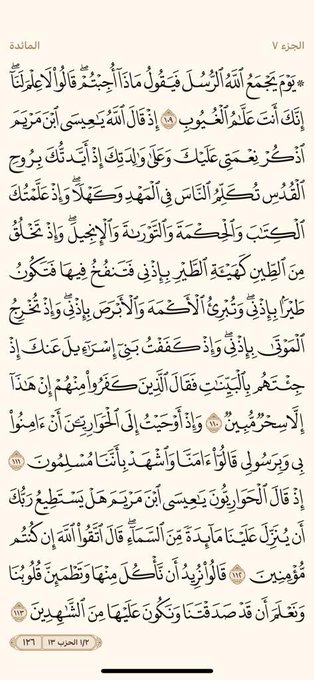 الجزء ٧ المائدة
۞ يَوْمَ يَجْمَعُ ٱللَّهُ ٱلرُّسُلَ فَيَقُولُ مَاذَآ أُجِبْتُمْ ۖ قَالُوا۟ لَا عِلْمَ لَنَآ ۖ
إِنَّكَ أَنتَ عَلَّـٰمُ ٱلْغُيُوبِ ١٠٩ إِذْ قَالَ ٱللَّهُ يَـٰعِيسَى ٱبْنَ مَرْيَمَ
ٱذْكُرْ نِعْمَتِى عَلَيْكَ وَعَلَىٰ وَٰلِدَتِكَ إِذْ أَيَّدتُّكَ بِرُوحِ
ٱلْقُدُسِ تُكَلِّمُ ٱلنَّاسَ فِى ٱلْمَهْدِ وَكَهْلًا ۖ وَإِذْ عَلَّمْتُكَ
ٱلْكِتَـٰبَ وَٱلْحِكْمَةَ وَٱلتَّوْرَىٰةَ وَٱلْإِنجِيلَ ۖ وَإِذْ تَخْلُقُ
مِنَ ٱلطِّينِ كَهَيْـَٔةِ ٱلطَّيْرِ بِإِذْنِى فَتَنفُخُ فِيهَا فَتَكُونُ
طَيْرًۢا بِإِذْنِى ۖ وَتُبْرِئُ ٱلْأَكْمَهَ وَٱلْأَبْرَصَ بِإِذْنِى ۖ وَإِذْ تُخْرِجُ
ٱلْمَوْتَىٰ بِإِذْنِى ۖ وَإِذْ كَفَفْتُ بَنِىٓ إِسْرَٰٓءِيلَ عَنكَ إِذْ
جِئْتَهُم بِٱلْبَيِّنَـٰتِ فَقَالَ ٱلَّذِينَ كَفَرُوا۟ مِنْهُمْ إِنْ هَـٰذَآ
إِلَّا سِحْرٌ مُّبِينٌ ١١٠ وَإِذْ أَوْحَيْتُ إِلَى ٱلْحَوَارِيِّـۧنَ أَنْ ءَامِنُوا۟
بِى وَبِرَسُولِى قَالُوٓا۟ ءَامَنَّا وَٱشْهَدْ بِأَنَّنَا مُسْلِمُونَ ١١١
إِذْ قَالَ ٱلْحَوَارِيُّونَ يَـٰعِيسَى ٱبْنَ مَرْيَمَ هَلْ يَسْتَطِيعُ رَبُّكَ
أَن يُنَزِّلَ عَلَيْنَا مَآئِدَةً مِّنَ ٱلسَّمَآءِ ۖ قَالَ ٱتَّقُوا۟ ٱللَّهَ إِن كُنتُم
مُّؤْمِنِينَ ١١٢ قَالُوا۟ نُرِيدُ أَن نَّأْكُلَ مِنْهَا وَتَطْمَئِنَّ قُلُوبُنَا
وَنَعْلَمَ أَن قَدْ صَدَقْتَنَا وَنَكُونَ عَلَيْهَا مِنَ ٱلشَّـٰهِدِينَ ١١٣
١/٢ الحزب ١٣ ١٢٦